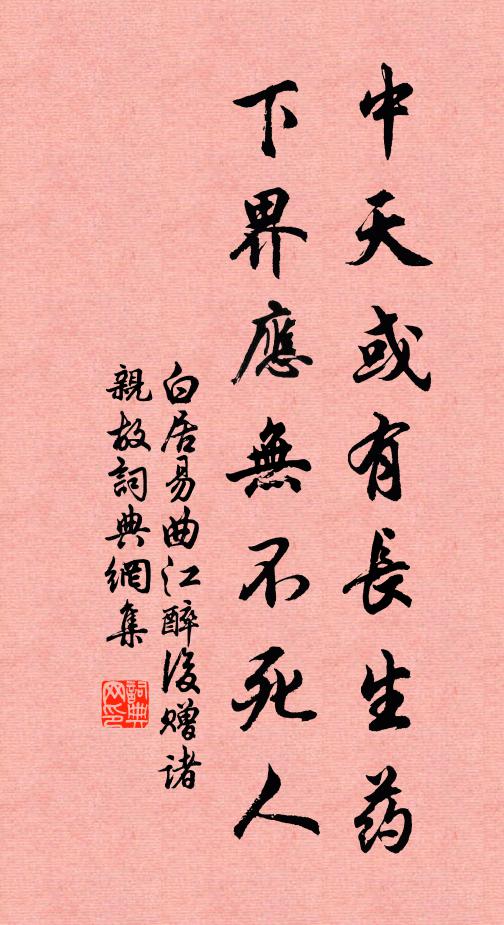 中天或有長生药
下界應無不死人
白居易曲江醉後贈诸
親故詞典網集
詞典网印